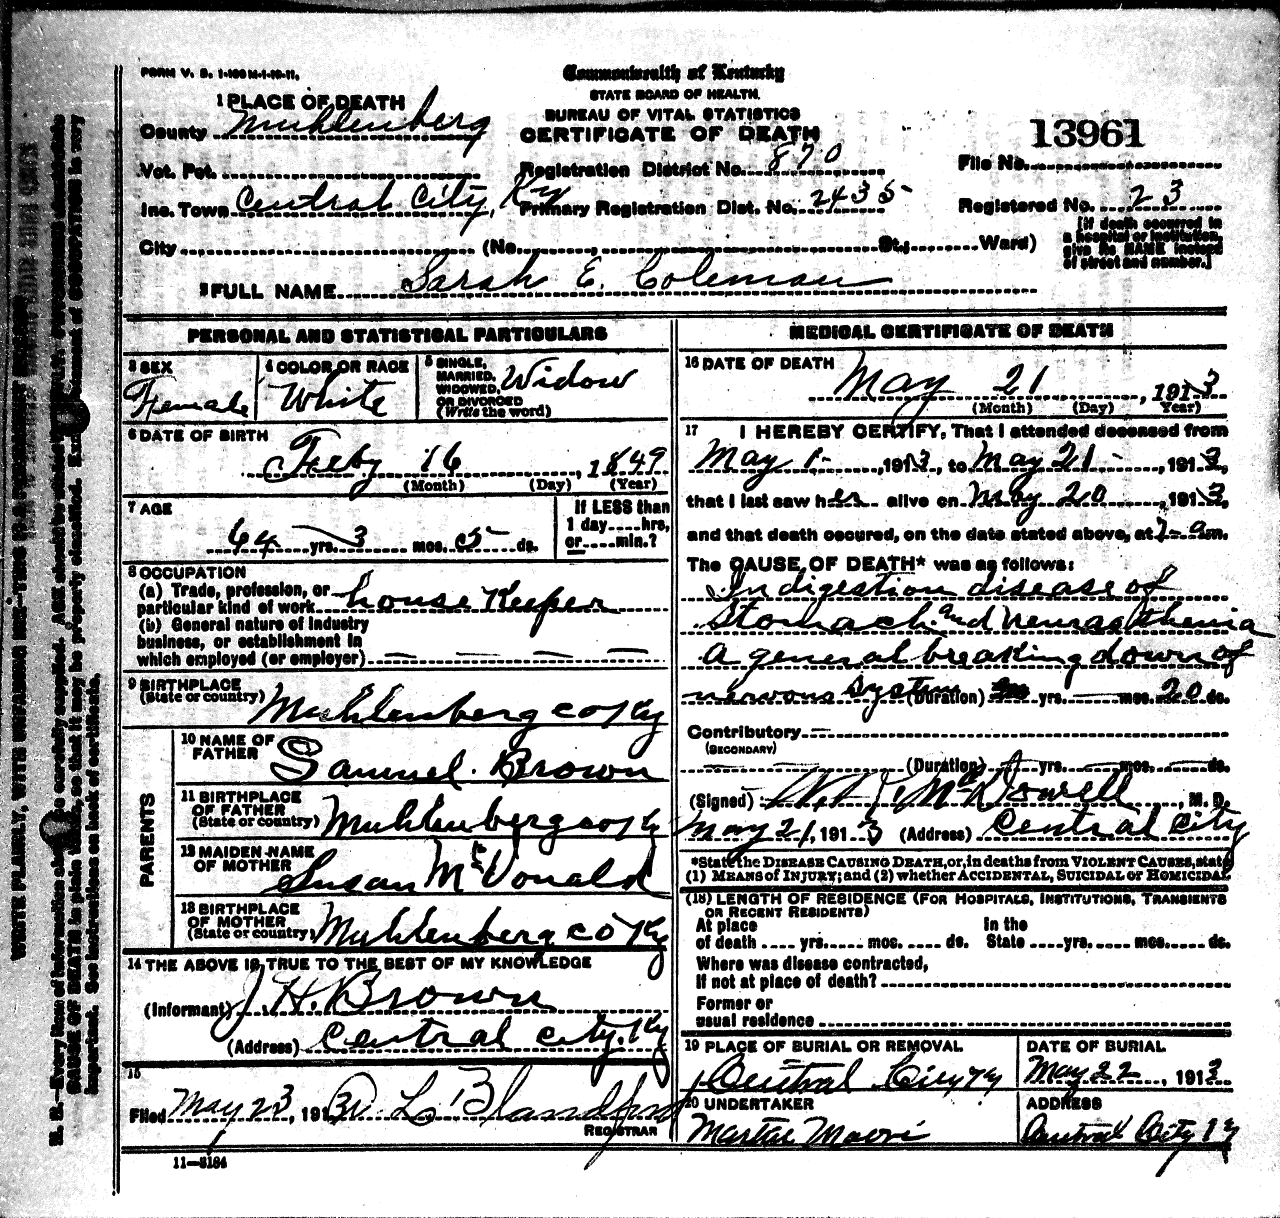 FORM V. S. 1-100M-1-10-11.
Commonwealth of Kentucky
STATE BOARD OF HEALTH.
BUREAU OF VITAL STATISTICS
CERTIFICATE OF DEATH
1 PLACE OF DEATH
County Muhlenberg
13961
Vot. Pct.
Registration District No. 870
File No.
Inc. Town Central City, Ky
Primary Registration Dist. No. 2435
Registered No. 23
City (No. St.; Ward)
[If death occurred in
a hospital or institution,
give its NAME instead
of street and number.]
2 FULL NAME Sarah E. Coleman
PERSONAL AND STATISTICAL PARTICULARS
3 SEX
Female
4 COLOR OR RACE
White
5 SINGLE,
MARRIED,
WIDOWED,
OR DIVORCED
(Write the word)
Widow
6 DATE OF BIRTH
Feby 16, 1849
(Month) (Day) (Year)
7 AGE
64 yrs. 3 mos. 5 ds.
If LESS than
1 day....hrs,
or....min.?
8 OCCUPATION
(a) Trade, profession, or
particular kind of work house Keeper
(b) General nature of industry
business, or establishment in
which employed (or employer)
9 BIRTHPLACE
(State or country) Muhlenberg co Ky
PARENTS
10 NAME OF
FATHER Samuel Brown
11 BIRTHPLACE
OF FATHER
(State or country) Muhlenberg co Ky
12 MAIDEN NAME
OF MOTHER Susan McDonald
13 BIRTHPLACE
OF MOTHER
(State or country) Muhlenberg co Ky
14 THE ABOVE IS TRUE TO THE BEST OF MY KNOWLEDGE
(Informant) J. H. Brown
(Address) Central City, Ky
15
Filed May 23, 191
REGISTRAR
11—5184
MEDICAL CERTIFICATE OF DEATH
16 DATE OF DEATH
May 21, 1913
(Month) (Day) (Year)
17 I HEREBY CERTIFY, That I attended deceased from
May 1-, 1913, to May 21-, 1913,
that I last saw her alive on May 20, 1913,
and that death occured, on the date stated above, at 7-am.
The CAUSE OF DEATH* was as follows:
Indigestion disease of
Stomach and neurasthenia
a general breaking down of
nervous system (Duration) yrs. mos. 20 ds.
Contributory
(SECONDARY)
(Duration) yrs. mos. ds.
(Signed) McDowell, M. D.
May 21, 1913 (Address) Central City
*State the DISEASE CAUSING DEATH, or, in deaths from VIOLENT CAUSES, state
(1) MEANS of INJURY; and (2) whether ACCIDENTAL, SUICIDAL or HOMICIDAL
(18) LENGTH OF RESIDENCE (FOR HOSPITALS, INSTITUTIONS, TRANSIENTS
OR RECENT RESIDENTS)
At place
of death .... yrs..... mos..... ds.
In the
State ....yrs..... mos..... ds.
Where was disease contracted,
If not at place of death?
Former or
usual residence
19 PLACE OF BURIAL OR REMOVAL
Central City Ky
DATE OF BURIAL
May 22, 1913
20 UNDERTAKER
ADDRESS
Central City Ky